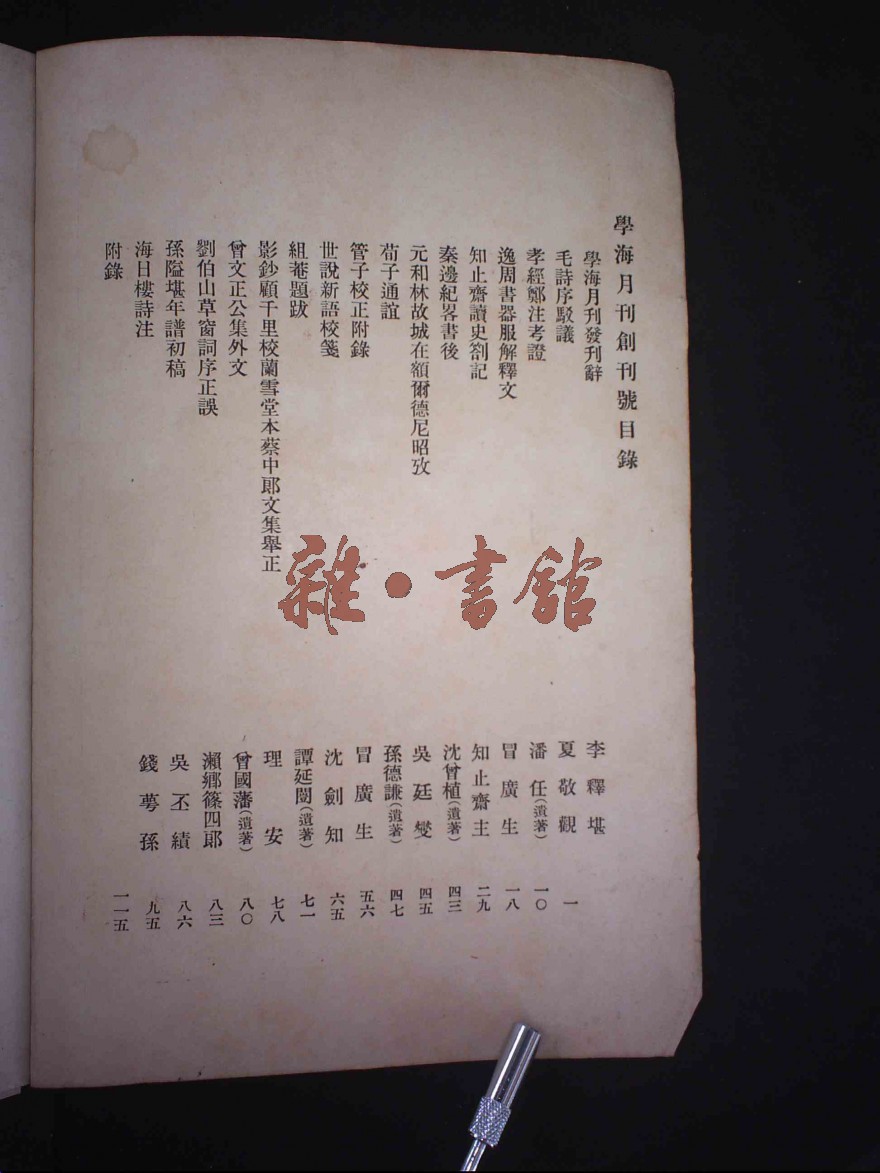 學海月刊創刊號目錄
學海月刊發刊辭 李釋堪
毛詩序駁議 夏敬觀 一
孝經鄭注考證 潘任(遺著) 一〇
逸周書器服解釋文 冒廣生 一八
知止齋讀史劄記 知止齋主 二九
秦邊紀畧書後 沈曾植(遺著) 四三
元和林故城在額爾德尼昭攷 吳廷燮 四五
荀子通誼 孫德謙(遺著) 四七
管子校正附錄 冒廣生 五六
世說新語校箋 沈劍知 六五
組菴題跋 譚延闓(遺著) 七一
影鈔顧千里校蘭雪堂本蔡中郎文集舉正 理安 七八
曾文正公集外文 曾國藩(遺著) 八〇
劉伯山草窗詞序正誤 瀨鄉篠四郎 八三
孫隘堪年譜初稿 吳丕績 八六
海日樓詩注 錢萼孫 九五
附錄 一一五
雜·書館